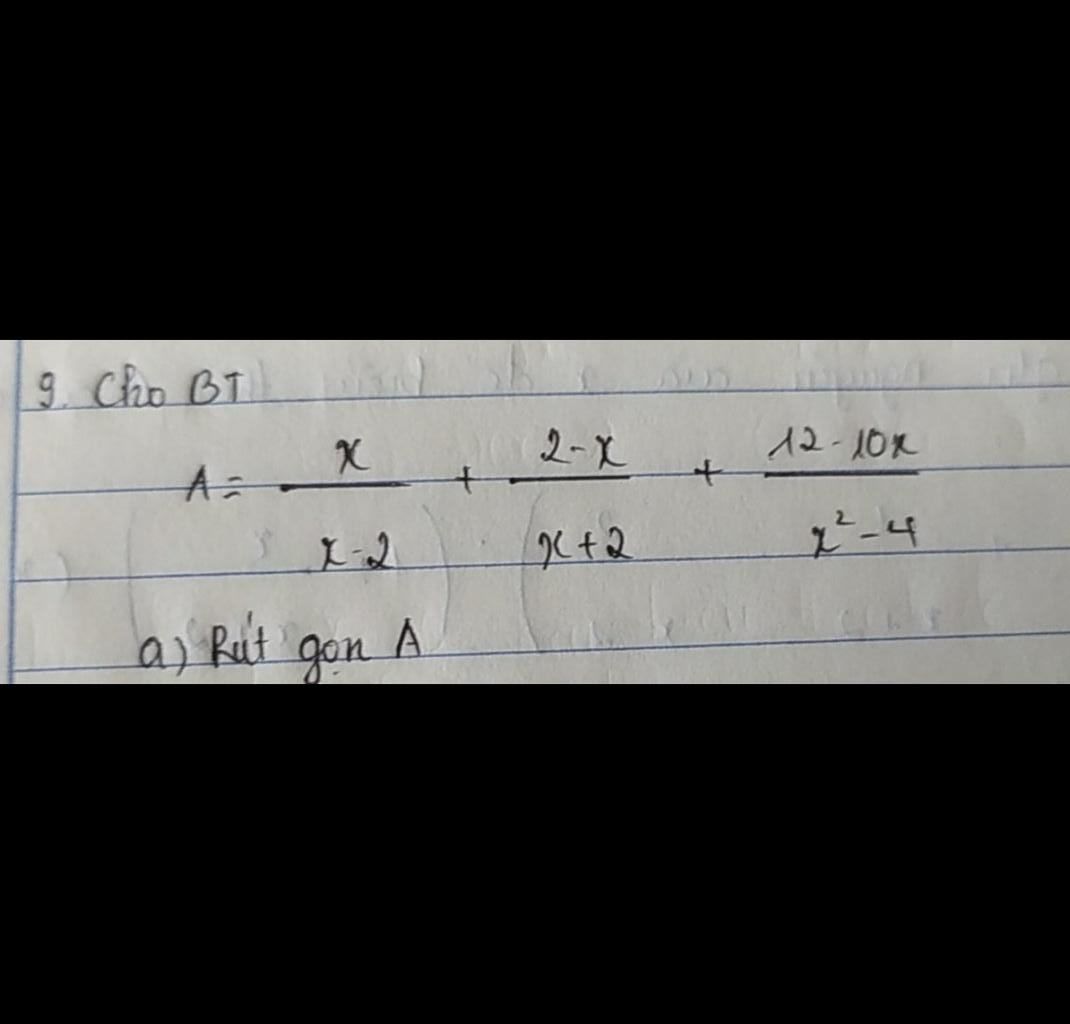 9. Cho BT
A = x/(x-2) + (2-x)/(x+2) + (12-10x)/(x²-4)
a) Rút gọn A